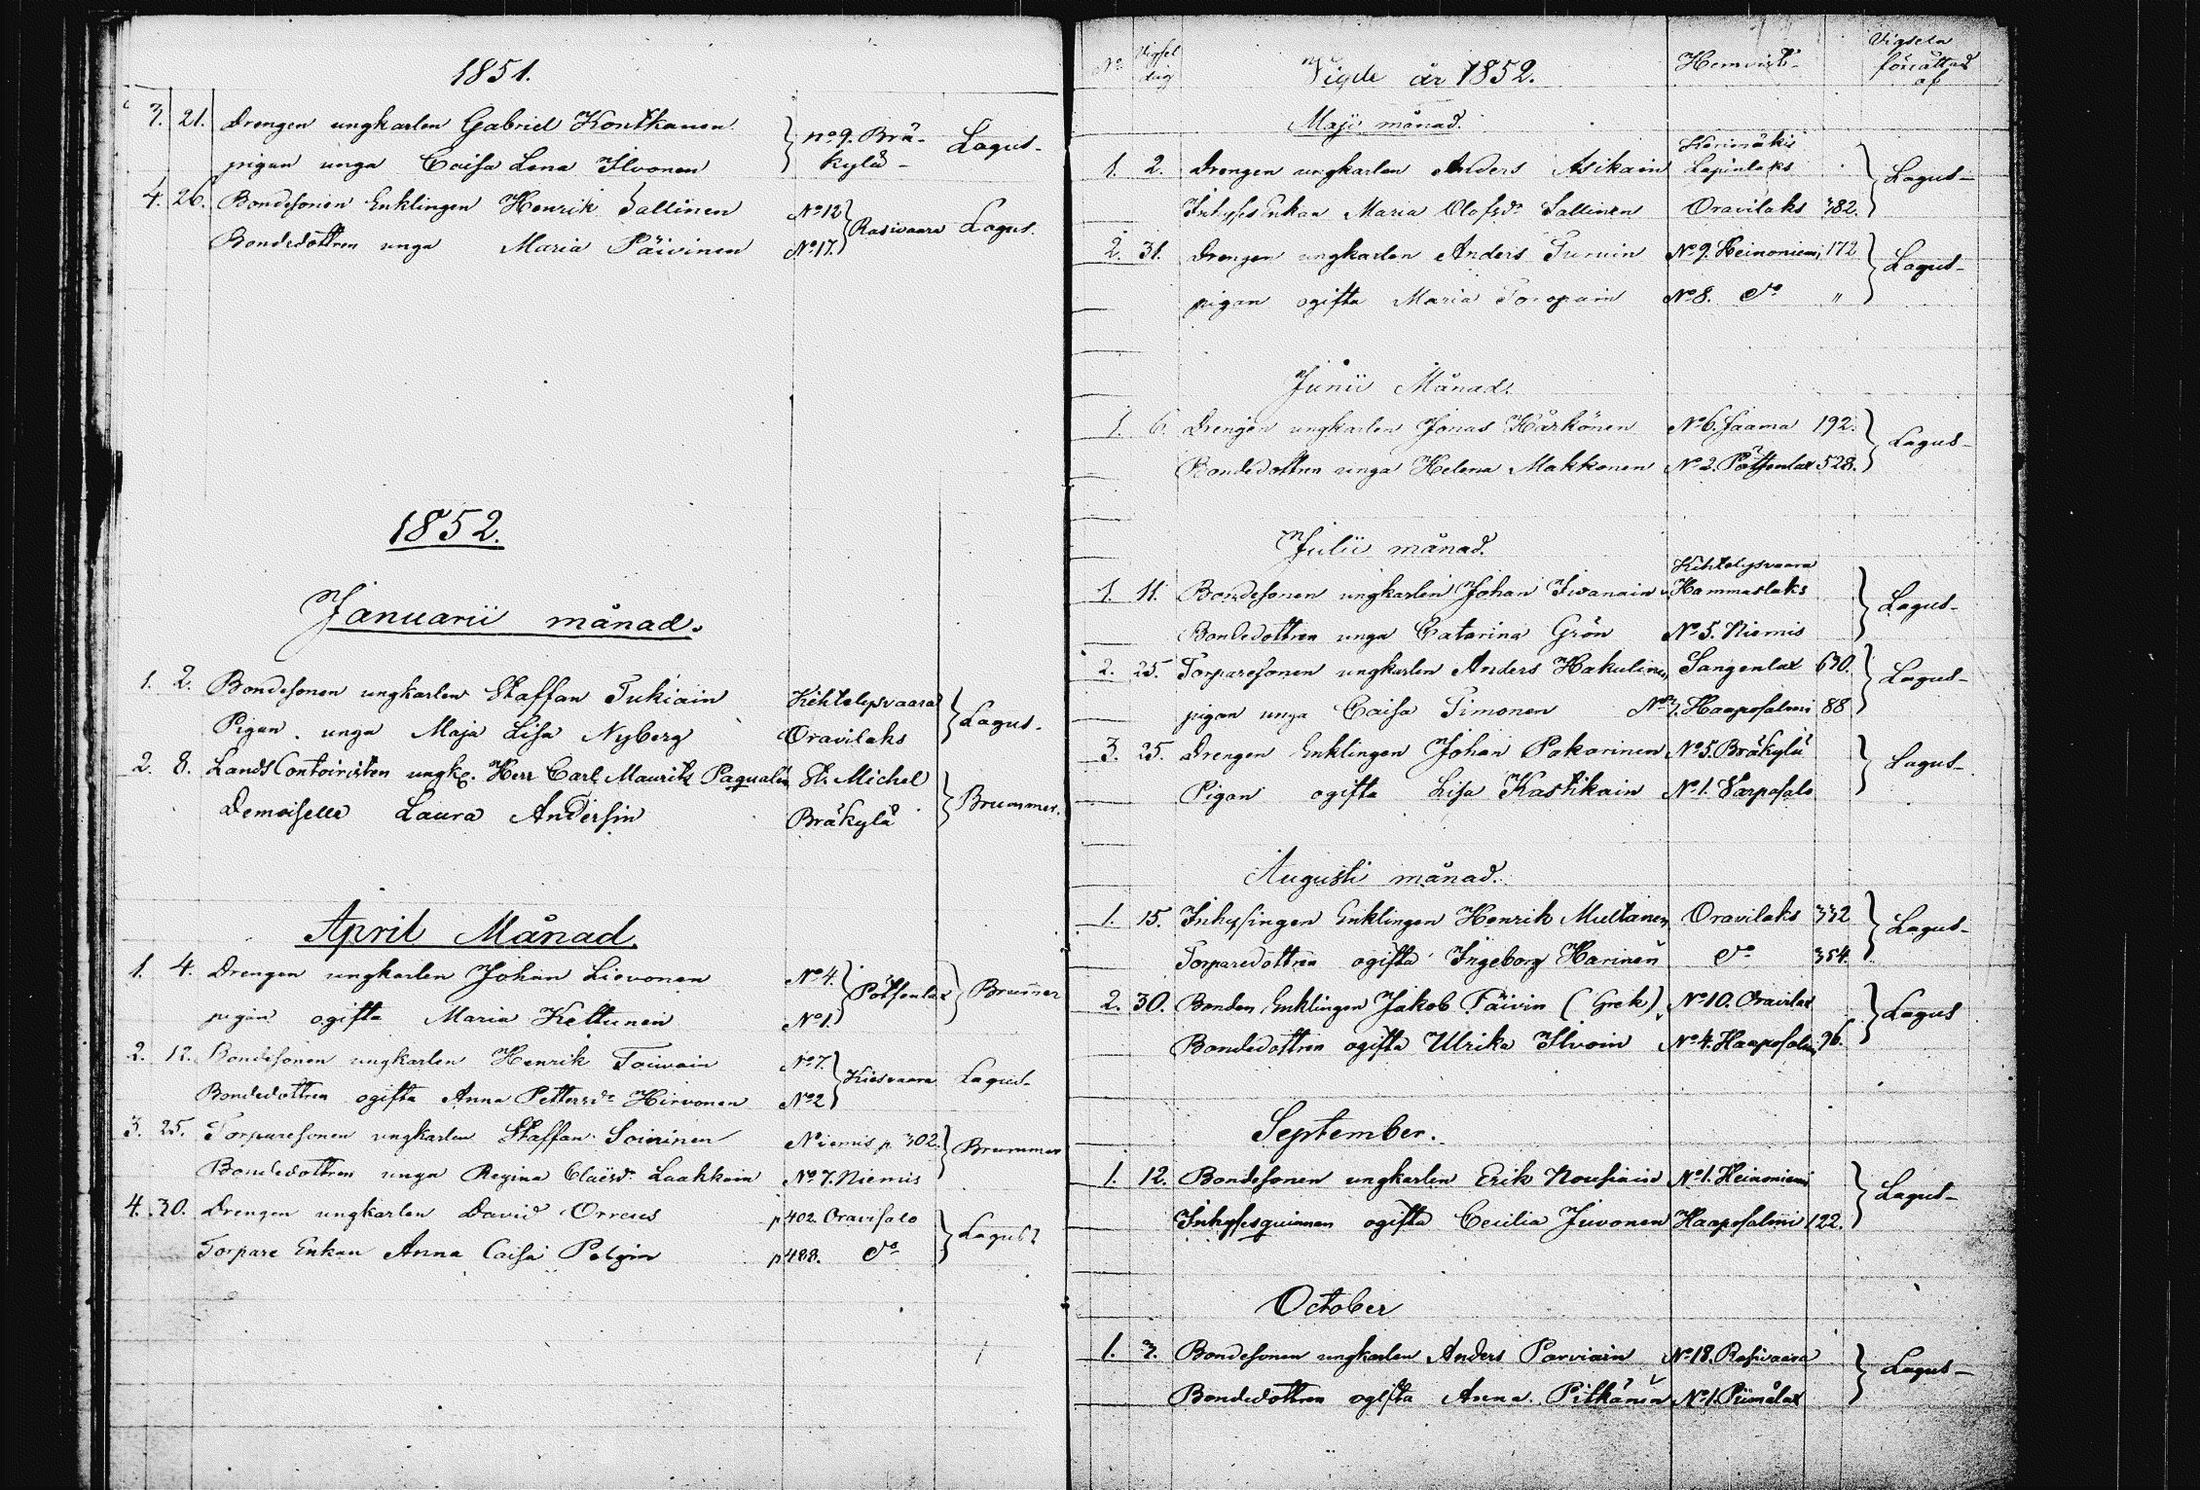 1851.
3. 21. Drengen ungkarlen Gabriel Kontkanen } No 9. Brä- Lagus-
pigan unga Caisa Lena Ilvonen kylä-
4. 26. Bondesonen Enklingen Henrik Sallinen No 12 } Rasivaara Lagus.
Bondedottren unga Maria Päivinen No 17.
1852.
Januarii månad.
1. 2. Bondesonen ungkarlen Staffan Tukiain Kihtelysvaara } Lagus.
Pigan unga Maja Lisa Nyberg Oravilaks
2. 8. Lands Contoiristen ungk. Herr Carl Maurits Paqualin St. Michel } Brummer.
Demoiselle Laura Andersin Bräkylä
April Månad.
1. 4. Drengen ungkarlen Johan Lievonen No 4. } Pötsenlax } Brummer
pigan ogifta Maria Kettunen No 1.
2. 12. Bondesonen ungkarlen Henrik Toivain No 7. } Kiesvaara Lagus-
Bondedottren ogifta Anna Pettersdr Hirvonen No 2
3. 25. Torparesonen ungkarlen Staffan Soininen Niemis p 302. } Brummer
Bondedottren unga Regina Claësdr Laakkain No 7. Niemis
4. 30. Drengen ungkarlen David Orreus p 402. Oravisalo } Lagus
Torpare Enkan Anna Caisa Polgin p 488. do
No Vigsel dag Vigde år 1852. Hemvist- Vigseln förrättad af
Maji månad.
Kerimäki
1. 2. Drengen ungkarlen Anders Asikain Lapinlaks } Lagus-
Inhyses Enkan Maria Olofsdr Sallinen Oravilaks 382.
2. 31. Drengen ungkarlen Anders Turuin No 9. Heinoniemi 172 } Lagus-
pigan ogifta Maria Toropain No 8. do "
Junii Månad.
1. 6. Drengen ungkarlen Jonas Härkönen No 6. Jaama 192. } Lagus-
Bondedottren unga Helena Makkonen No 2. Pötsenlax 528.
Julii månad.
Kihtelysvaara
1. 11. Bondesonen ungkarlen Johan Iwanain Hammaslaks } Lagus-
Bondedottren unga Catarina Grön No 5. Niemis
2. 25. Torparesonen ungkarlen Anders Hakulinen Sangenlax 630. } Lagus-
pigan unga Caisa Timonen No 7. Haaposalmi 88
3. 25. Drengen Enklingen Johan Pakarinen No 5. Bräkylä } Lagus-
Pigan ogifta Lisa Kastikain No 1. Varpasalo
Augusti månad.
1. 15. Inhysingen Enklingen Henrik Multanen Oravilaks 332 } Lagus-
Torparedottren ogifta Ingeborg Harinen do 354.
2. 30. Bonden Enklingen Jakob Päivin (Grek) No 10. Oravilax } Lagus
Bondedottren ogifta Ulrika Ilvoin No 4. Haaposalmi 96.
September.
1. 12. Bondesonen ungkarlen Erik Nousiain No 1. Heinoniemi } Lagus-
Inhysesquinnan ogifta Cecilia Juvonen Haaposalmi 122.
October
1. 3. Bondesonen ungkarlen Anders Parviain No 18. Rasivaara } Lagus-
Bondedottren ogifta Anna Pitkänen No 1. Piimälax